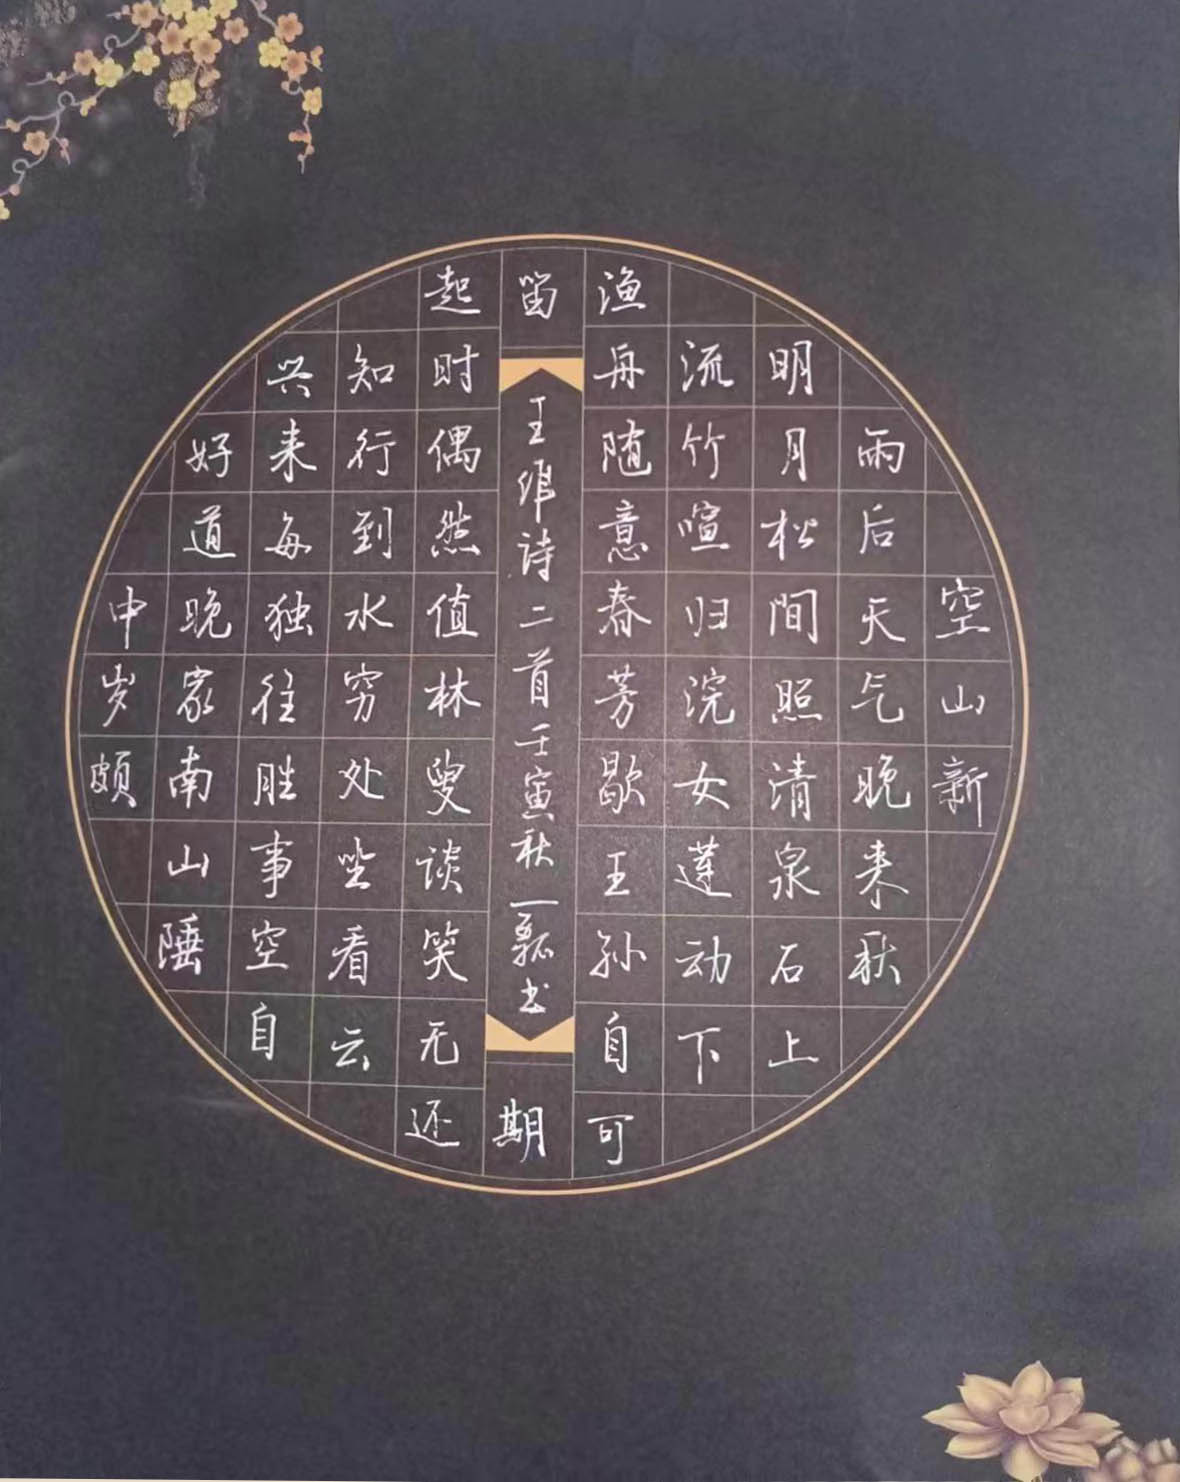 空山新
雨后天气晚来秋
明月松間照清泉石上
流竹喧归浣女莲动下
渔舟随意春芳歇王孙自可
留
中岁颇
好道晚家南山陲
兴来每独往胜事空自
知行到水穷处坐看云
起时偶然值林叟谈笑无还
期
王维诗二首壬寅秋一瓢书